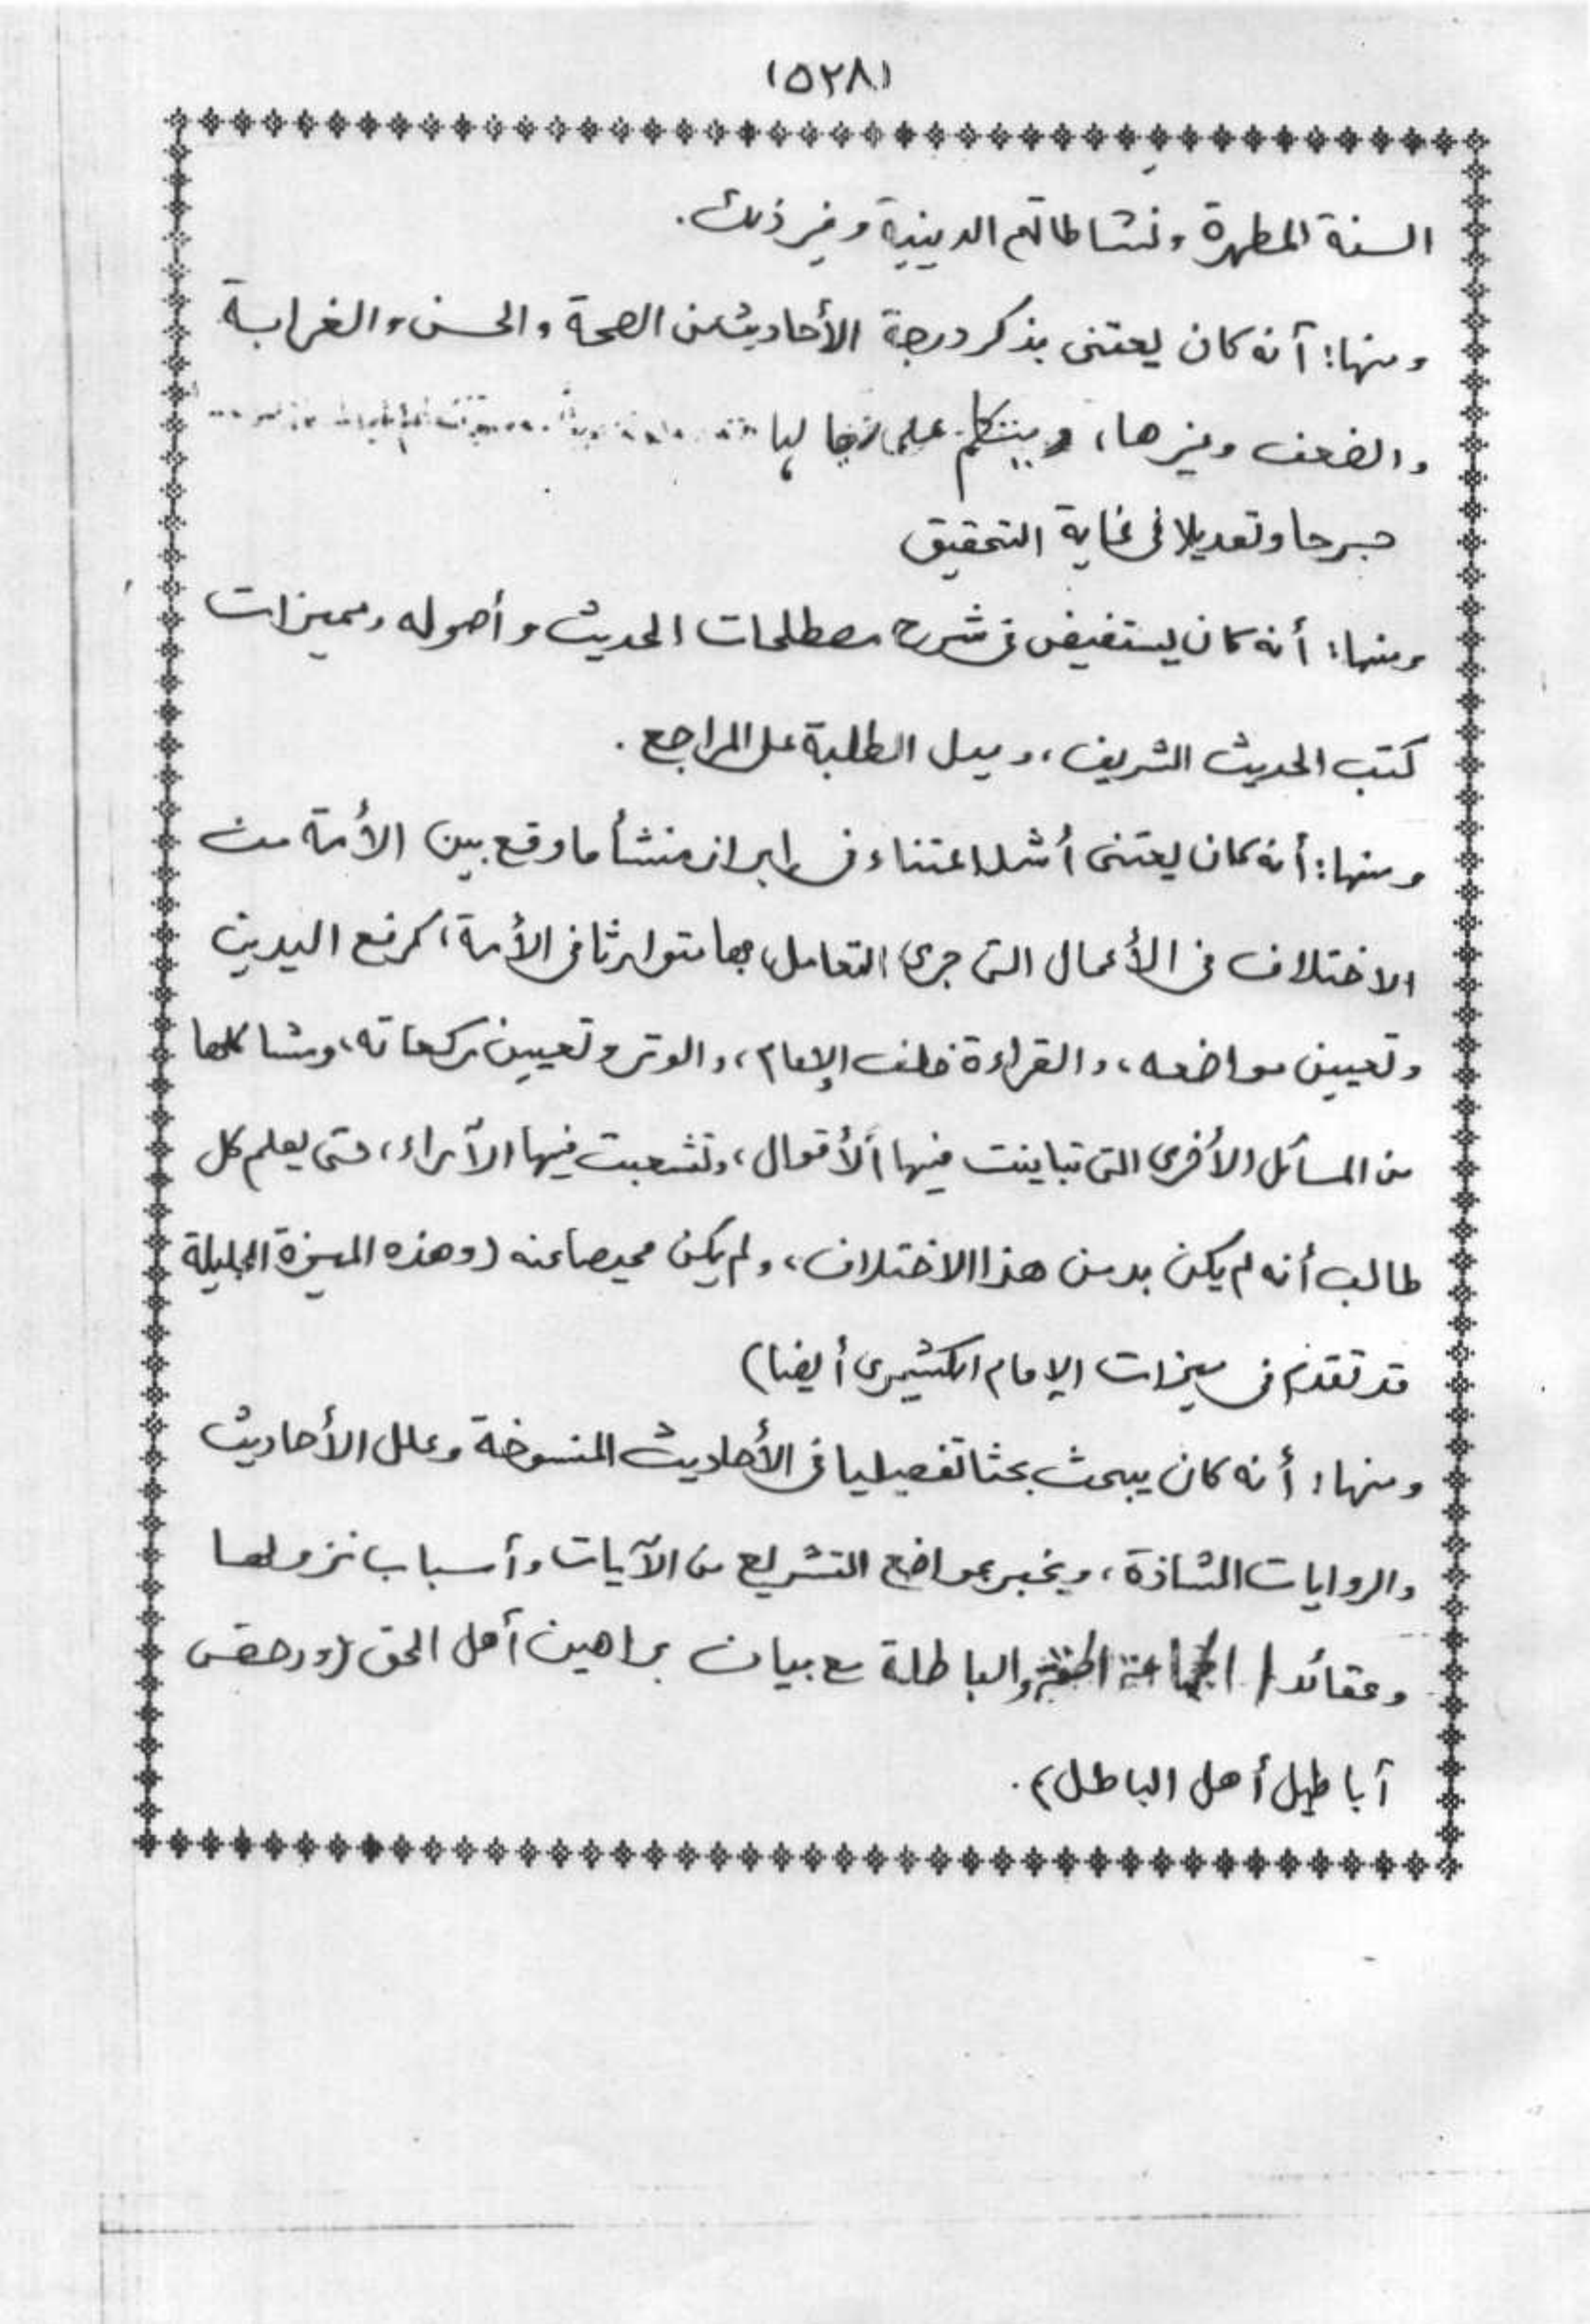 (٥٢٨)
السنة المطهرة ونشاطاتهم الدينية وغير ذلك.
ومنها: أنه كان يعتنى بذكر درجة الأحاديث من الصحة والحسن والغرابة
والضعف وغيرها، ويتكلم على رجالها
جرحا وتعديلا فى غاية التحقيق
ومنها: أنه كان يستفيض فى شرح مصطلحات الحديث وأصوله ومميزات
كتب الحديث الشريف، ويدل الطلبة على المراجع.
ومنها: أنه كان يعتنى أشد اعتناء فى إبراز منشأ ما وقع بين الأمة من
الاختلاف فى الأعمال التى جرى التعامل بها متوارثا فى الأمة، كرفع اليدين
وتعيين مواضعه، والقراءة خلف الإمام، والوتر وتعيين ركعاته، ومشاكلها
من المسائل الأخرى التى تباينت فيها الأقوال، وتشعبت فيها الآراء، حتى يعلم كل
طالب أنه لم يكن بد من هذا الاختلاف، ولم يكن محيصا عنه (وهذه الميزة الجليلة
قد تقدم فى ميزات الإمام الكشميرى أيضا)
ومنها: أنه كان يبحث بحثا تفصيليا فى الأحاديث المنسوخة وعلل الأحاديث
والروايات الشاذة، ويخبر بمواضع التشريع من الآيات وأسباب نزولها
وعقائد الجماعة الحقة والباطلة مع بيان براهين أهل الحق (ودحض
أباطيل أهل الباطل).